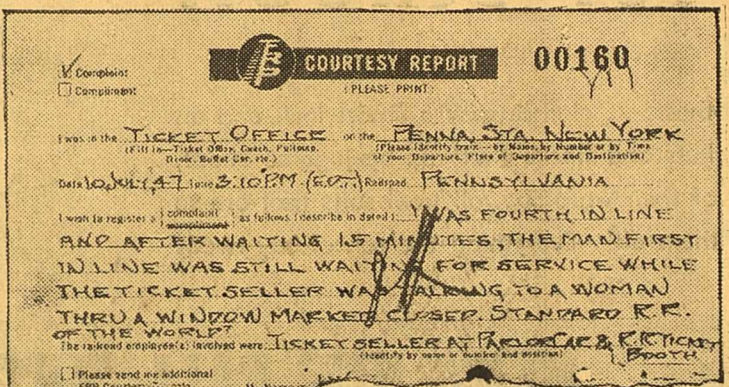 FRP COURTESY REPORT 00160
Complaint
Compliment
(PLEASE PRINT)
I was in the TICKET OFFICE on the PENNA, STA, NEW YORK
(Fill in—Ticket Office, Coach, Pullman, Diner, Buffet Car, etc.)
(Please identify train—by Name, by Number or by Time of your Departure, Place of Departure and Destination)
Date 10 JULY, 47 Time 3:10 P.M. (E.D.T.) Railroad PENNSYLVANIA
I wish to register a complaint compliment as follows (describe in detail): WAS FOURTH IN LINE
AND AFTER WAITING 15 MINUTES, THE MAN FIRST
IN LINE WAS STILL WAITING FOR SERVICE WHILE
THE TICKET SELLER WAS TALKING TO A WOMAN
THRU A WINDOW MARKED CLOSED. STANDARD R.R.
OF THE WORLD?
The railroad employee(s) involved were: TICKET SELLER AT PARLOR CAR & R.R. TICKET
BOOTH
(Identify by name or number and position)
Please send me additional
FRP Courtesy